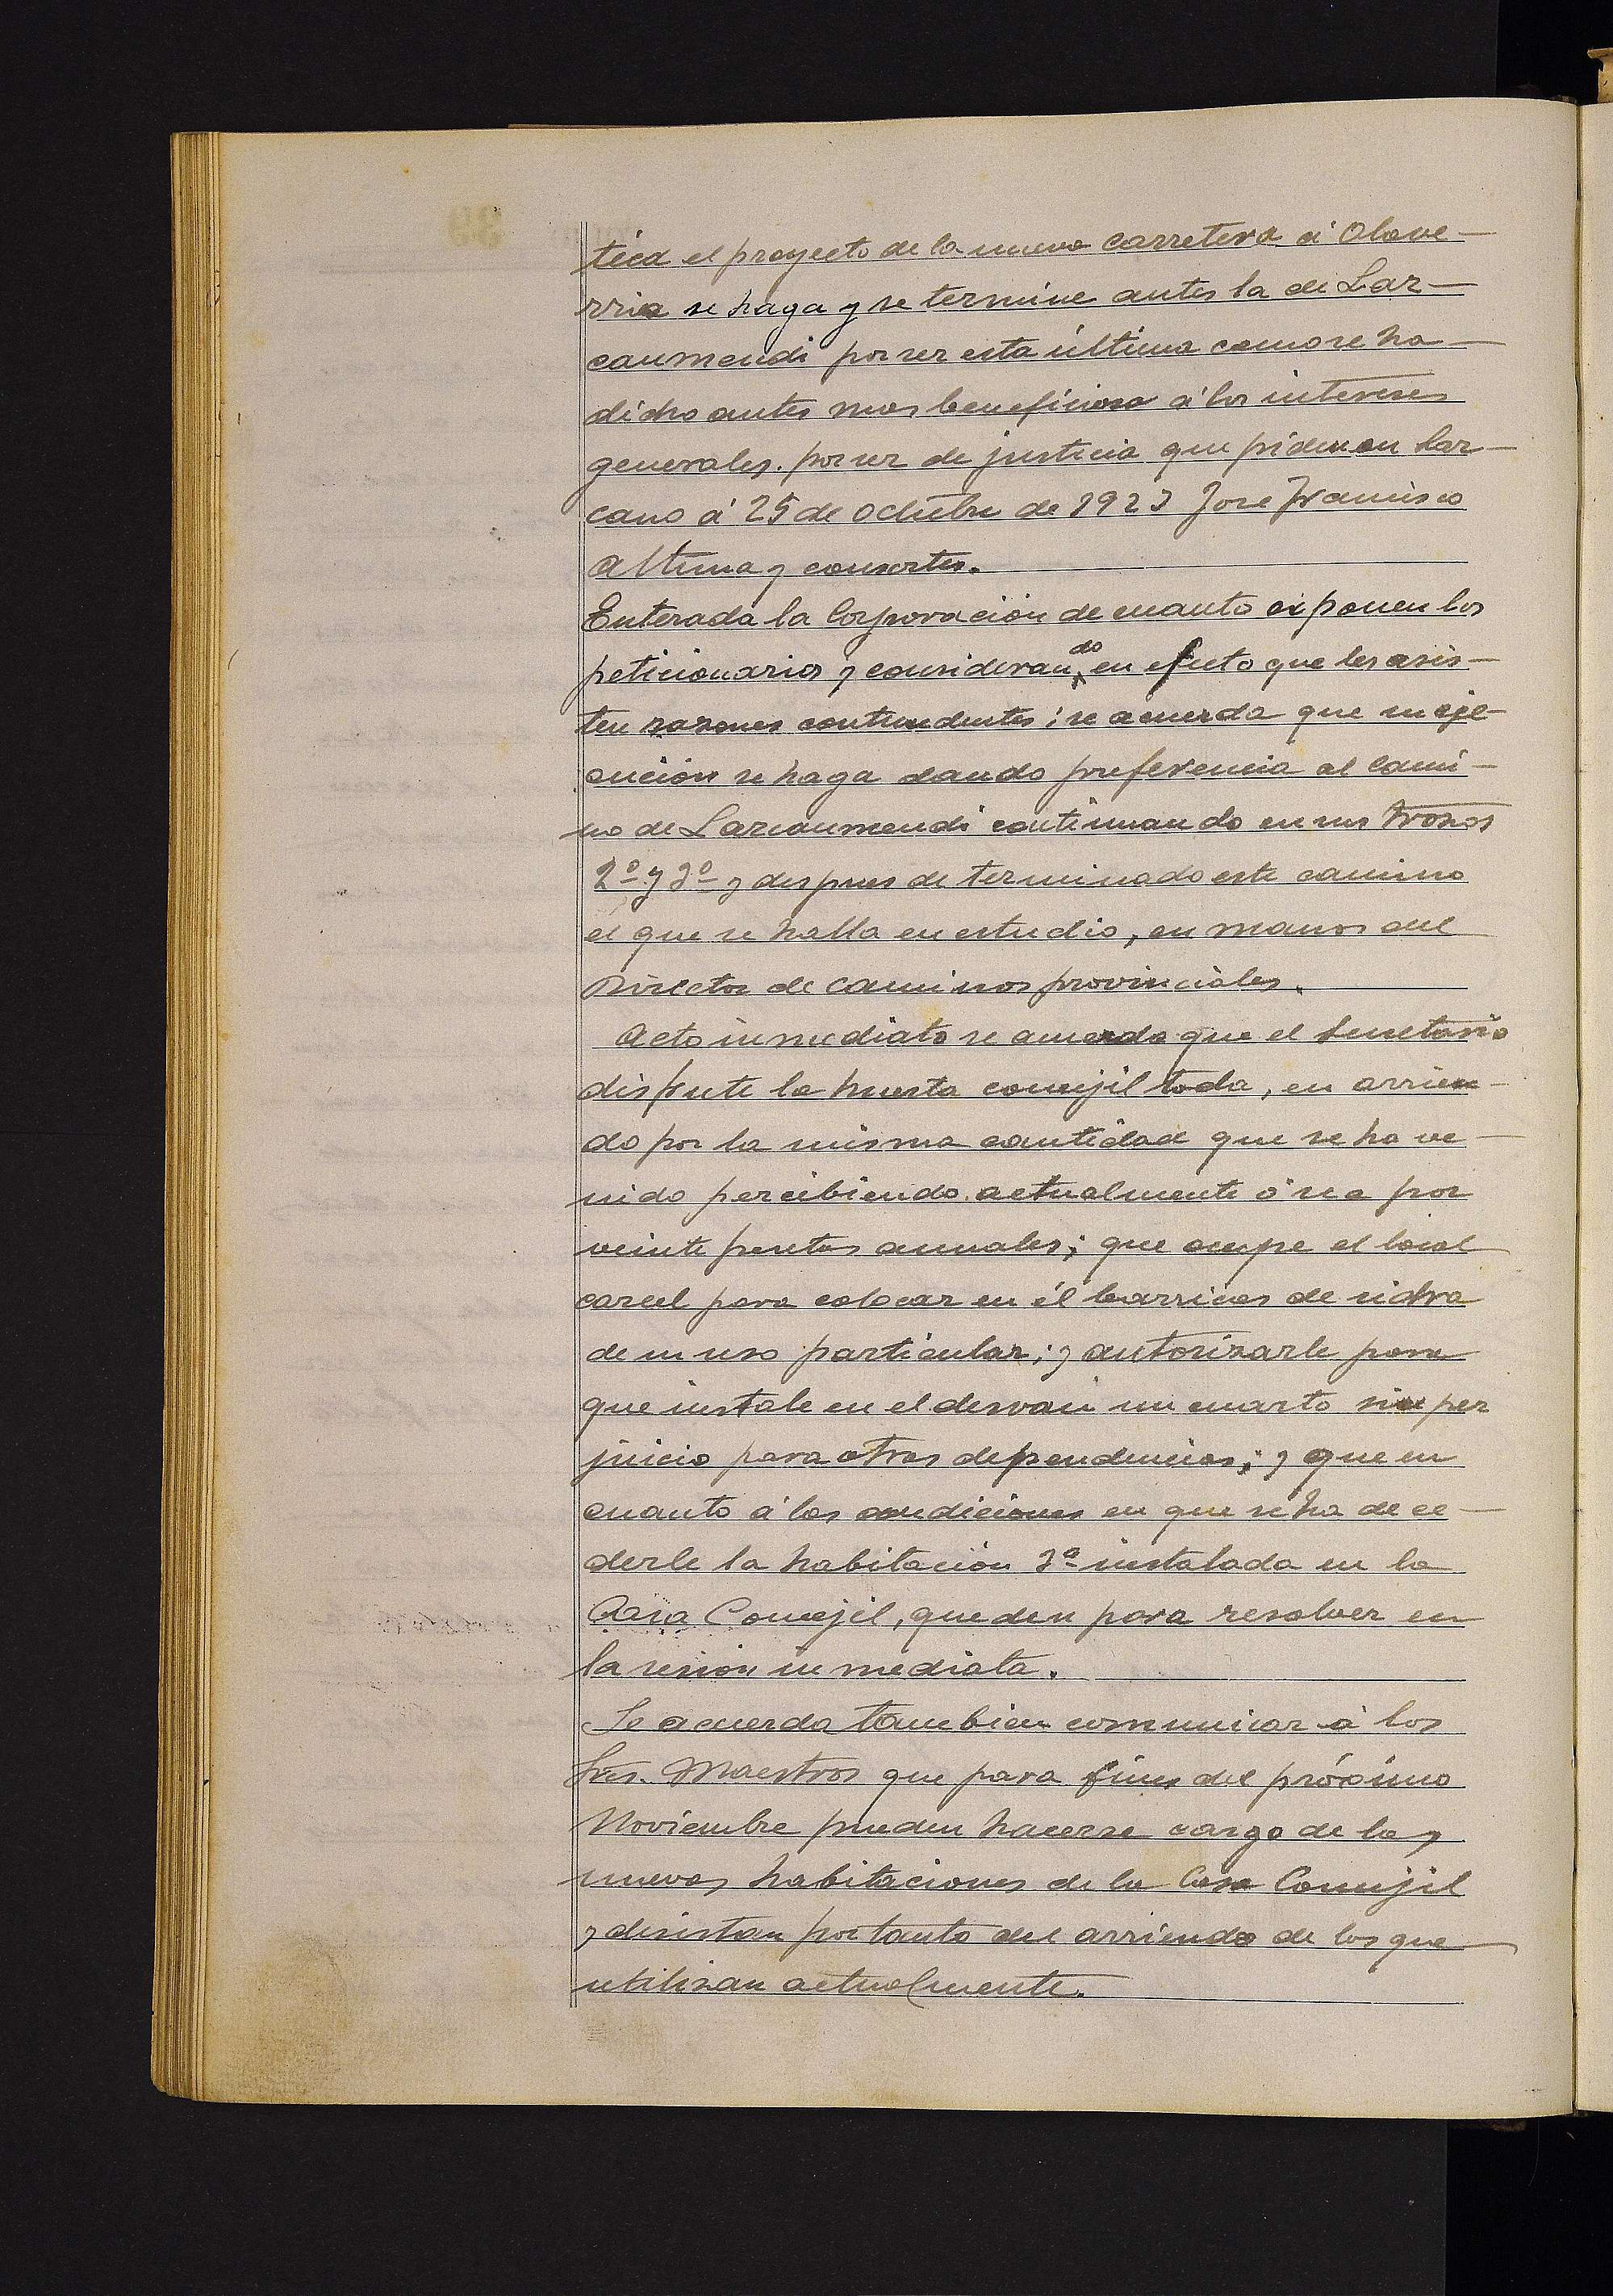 tica el proyecto de la nueva carretera á Olave-
rria se haga y se termine antes la de Lar-
caumendi por ser esta última como se ha
dicho antes mas beneficiosa á los intereses
generales. por ser de justicia que piden en Lar-
cano á 25 de octubre de 1923 Jose Francisco
Altuna y consortes.
Enterada la Corporación de cuanto exponen los
peticionarios y considerando en efecto que les asis-
ten razones contundentes; se acuerda que su eje-
cución se haga dando preferencia al Cami-
no de Larcaumendi continuando en sus trozos
2º y 3º y despues de terminado este camino
el que se halla en estudio, en manos del
Director de Caminos provinciales.
Acto inmediato se acuerda que el Secretario
disfrute la huerta concejil toda, en arrien-
do por la misma cantidad que se ha ve-
nido percibiendo actualmente ó sea por
veinte pesetas anuales; que ocupe el local
carcel para colocar en él barricas de sidra
de su uso particular; y autorizarle para
que instale en el desván un cuarto sin per
juicio para otras dependencias; y que en
cuanto á las condiciones en que se ha de ce-
derle la habitación 3ª instalada en la
Casa Concejil, queden para resolver en
la sesión inmediata.
Se acuerda tambien comunicar á los
Sres. Maestros que para fines del próximo
Noviembre pueden hacerse cargo de las
nuevas habitaciones de la Casa Concejil
y desistan por tanto del arriendo de los que
utilizan actualmente.